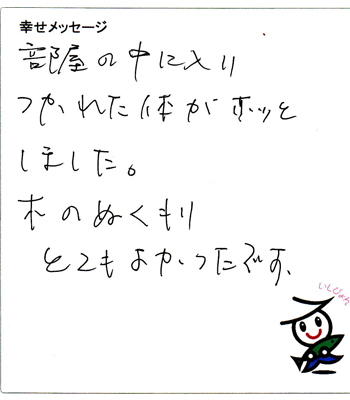 幸せメッセージ
部屋の中に入り
つかれた体がホッと
しました。
木のぬくもり
とてもよかったです。
いしぴょん